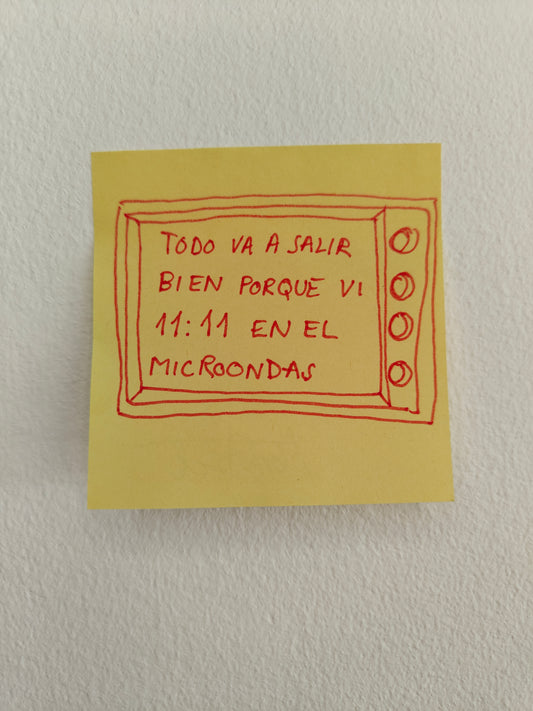 TODO VA A SALIR
BIEN PORQUE VI
11:11 EN EL
MICROONDAS